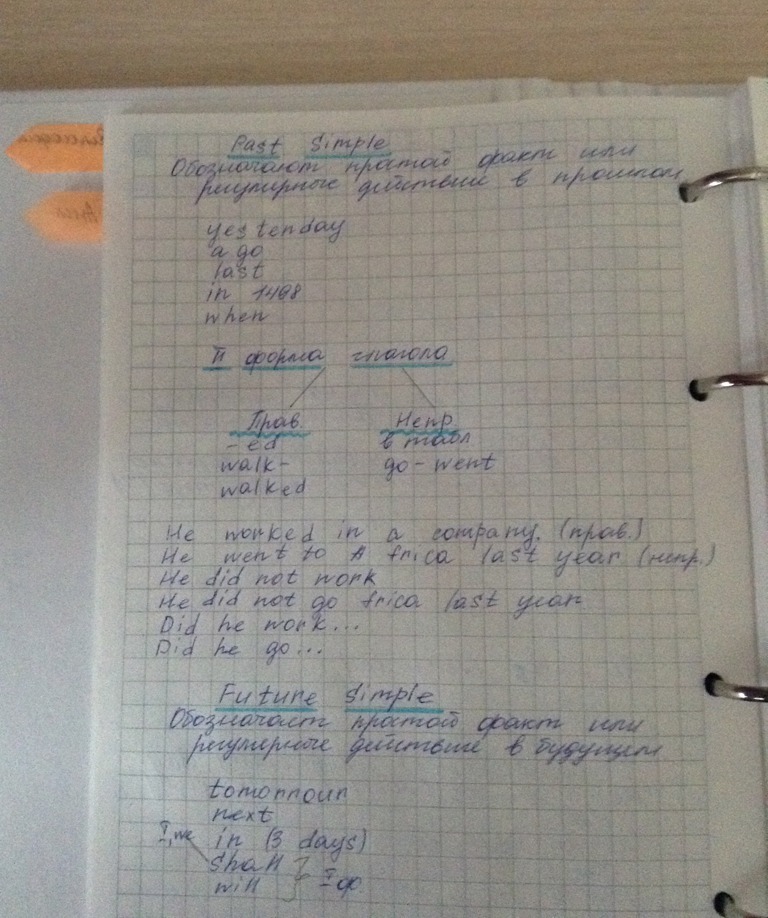 Past Simple
Обозначают простой факт или
регулярные действие в прошлом
yesterday
ago
last
in 1498
when
II форма глагола
Прав. Непр
-ed в табл
walk- go - went
walked
He worked in a company. (прав.)
He went to Africa last year (непр.)
He did not work
He did not go frica last year
Did he work...
Did he go...
Future Simple
Обозначает простой факт или
регулярные действие в будущем
tomorrour
next
I, we in (3 days)
shall
will I ф